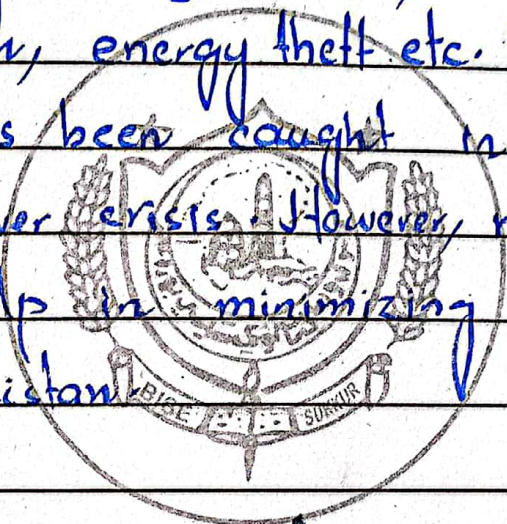 energy theft etc.
been caught in
crisis. However,
in minimizing
BISE SUKKUR